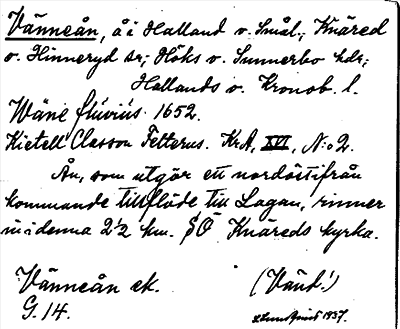 Vänneån, å i Halland o. Smål.; Knäred
o. Hinneryd sr; Höks o. Sunnerbo hdr;
Hallands o. Kronob. l.
Wäne flúviús 1652.
Kietell Classon Felterus. KrA, XVI, N:o 2.
Ån, som utgör ett nordöstifrån
kommande tillflöde till Lagan, rinner
in i denna 2 1/2 km. SÖ Knäreds kyrka.
Vänneån ek. (Vänd!)
G. 14. 1937.